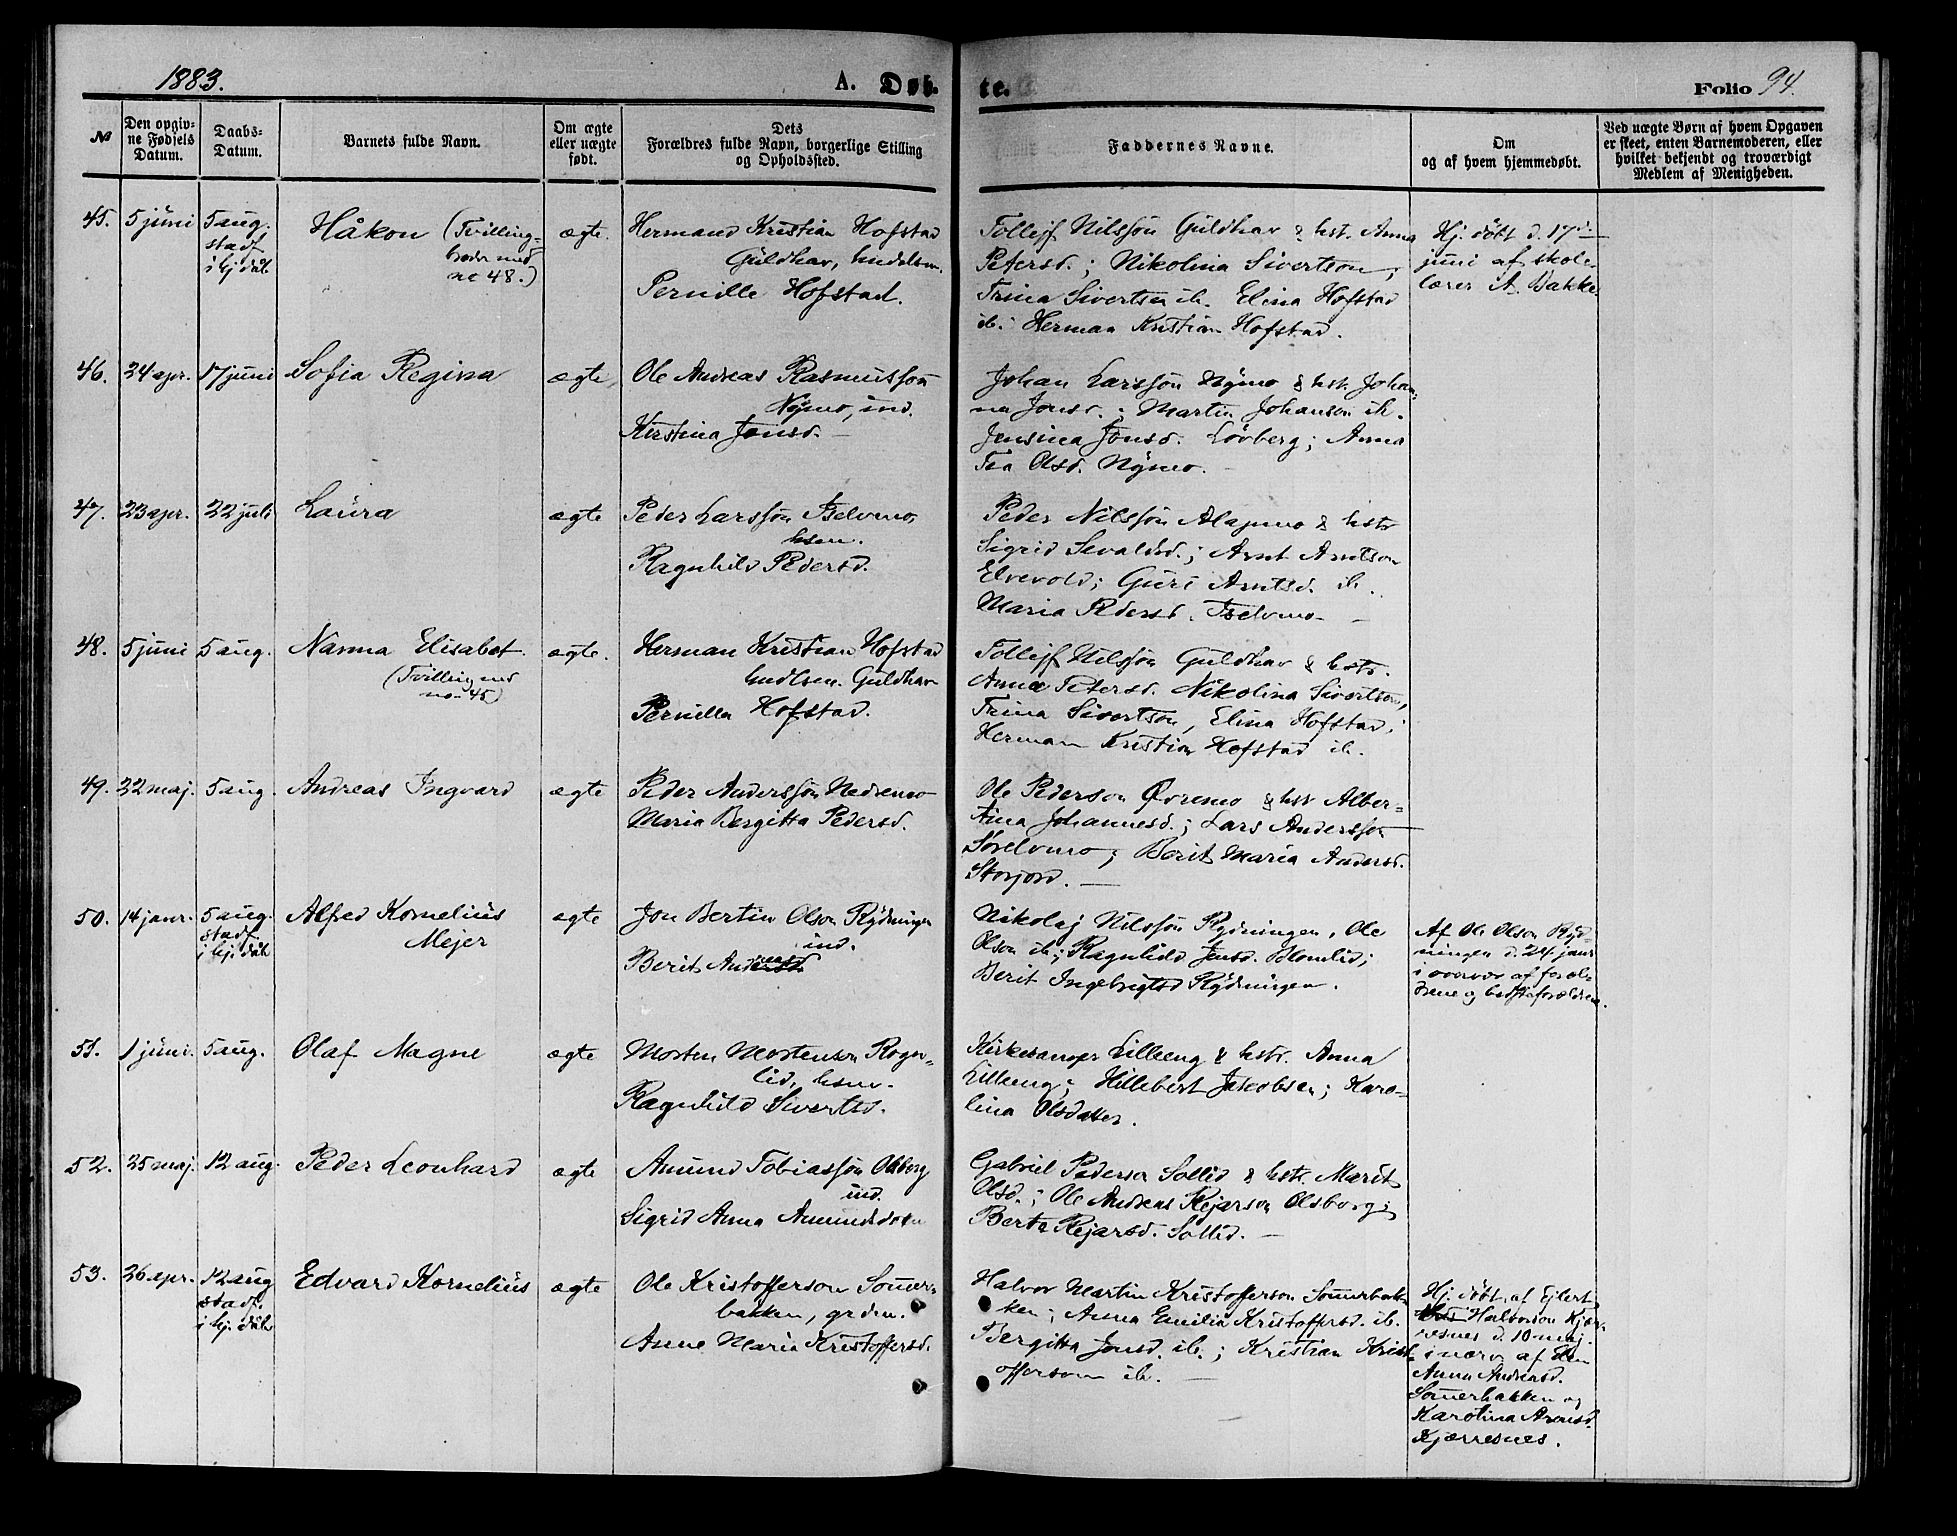 1883.
A. Døb-
te.
Folio 94.
№
Den opgiv-
ne Fødsels
Datum.
Daabs-
Datum.
Barnets fulde Navn.
Om ægte
eller uægte
født.
Dets
Forældres fulde Navn, borgerlige Stilling
og Opholdssted.
Faddernes Navne.
Om
og af hvem hjemmedøbt.
Ved uægte Børn af hvem Opgaven
er skeet, enten Barnemoderen, eller
hvilket bekjendt og troværdigt
Medlem af Menigheden.
45.
5 juni
5 aug.
stadf.
i hj. dåb
Håkon (Tvilling-
broder med
no 48.)
ægte.
Hermand Kristian Hofstad
Guldhav,
Pernille Hofstad.
Tollejf Nilssön Guldhav & hst. Anna
Petersd.; Nikolina Sivertson,
Trina Sivertsen ib. Elina Hofstad
ib. Herman Kristian Hofstad.
Hj. döbt d. 17de
juni af skole-
lærer A. Bakke
46.
24 apr.
17 juni
Sofia Regina
ægte
Ole Andreas Rasmussön
Nymo, ind.
Kirstina Jonsd.
Johan Larssön Nymo & hst. Johan-
na Jonsd.; Martin Johanson ib.
Jensina Jonsd. Lövberg; Anna
Tea Olsd. Nymo.
47.
23 apr.
22 juli
Laura
ægte
Peder Larssön Iselvmo,
hsm.
Ragnhild Pedersd.
Peder Nilssön Alapmo & hstr
Sigrid Sevaldsd.; Arnt Arntson
Elvevold; Guri Arntsd. ib.
Maria Pedersd. Iselvmo
48.
5 juni
5 aug.
Nanna Elisabet
(Tvilling med
no. 45)
ægte.
Herman Kristian Hofstad
Guldhav
Pernilla Hofstad.
Tollejf Nilssön Guldhav & hstr.
Anna Petersd. Nikolina Sivertson,
Trina Sivertson, Elina Hofstad;
Herman Kristian Hofstad ib.
49.
22 maj.
5 aug.
Andreas Ingvard
ægte
Peder Anderssön Nedremo
Maria Bergitta Pedersd.
Ole Pederson Øvremo & hst Alber-
tina Johannesd.; Lars Andersson
Sörelvmo; Berit Maria Andersd.
Storjord.
50.
14 janr.
5 aug.
stadf.
i hj. dåb
Alfred Kornelius
Mejer
ægte
Jon Bertin Olson Rydningen
ind.
Berit
Nikolaj Nilssön Rydningen, Ole
Olson ib; Ragnhild Jensd. Blomlid;
Berit Ingebrigtsd Rydningen.
Af Ole Olson Ryd-
ningen d. 24 janr
i overvær af foræl-
drene og bedsteforældrene.
51.
1 juni.
5 aug.
Olaf Magne
ægte
Morten Mortenson Rogn-
lid, hsm.
Ragnhild Sivertsd.
Kirkesanger Lilleeng & hstr. Anna
Lilleeng; Hillebert Jakobsen; Karo-
lina Olsdatter.
52.
25 maj.
12 aug.
Peder Leonhard
ægte
Amund Tobiassön Olsborg
ind.
Sigrid Anna Amundsdatter
Gabriel Pederson Sollid & hstr. Marit
Olsd.; Ole Andreas Rejerson Olsborg;
Berta Rejarsd. Sollid.
53.
26 apr.
12 aug
stadf.
i hj. dåb
Edvard Kornelius
ægte
Ole Kristofferson Somer-
bakken, grdm.
Anne Maria Kristoffersd.
Halvor Martin Kristofferson Somerbak-
ken; Anna Emilia Kristoffersd. ib.
Bergitta Jonsd. ib.; Kristian Krist-
offerson ib.
Hj. döbt af Ejlert
Halvorson Kjær-
resnes d. 10 maj
i nærv. af
Anna Andersd.
Somerbakken og
Karolina
Kjærresnes.